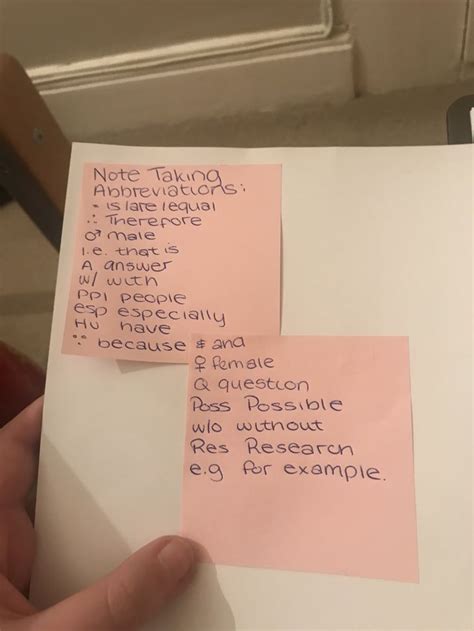 Note Taking
Abbreviations:
= is/are/equal
∴ Therefore
♂ male
i.e. that is
A answer
w/ with
PPl people
esp especially
Hv have
∵ because
& and
♀ female
Q question
Poss Possible
w/o without
Res Research
e.g for example.